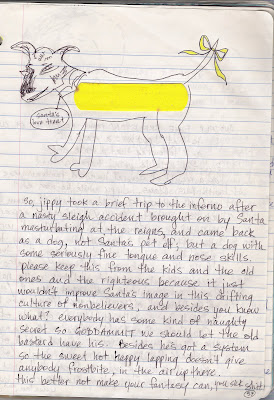 Santa's
love treat
so, jippy took a brief trip to the inferno after
a nasty sleigh accident brought on by Santa
masturbating at the reigns, and came back
as a dog, not Santa's pet elf, but a dog with
some seriously fine tongue and nose skills.
please keep this from the kids and the old
ones and the righteous because it just
wouldn't improve Santa's image in this drifting
culture of nonbelievers, and besides you know
what? everybody has some kind of naughty
secret so GODDAMNIT we should let the old
bastard have his. Besides he's got a system
so the sweet hot heppy lapping doesn't give
anybody frostbite, in the air up there.
this better not make your fantasy can, you set